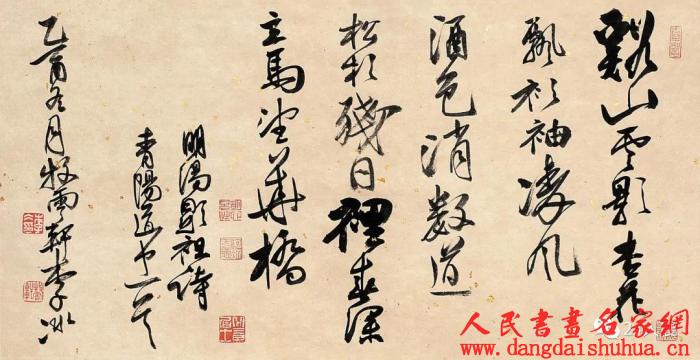 谿山雲影杏花
飄衫袖凌風
酒色消數道
松杉殘日裡春深
立馬望華橋
明湯顯祖詩
青陽道中一首
乙酉冬月牧雨軒李冰
人民書畫名家網
www.dangdaishuhua.cn